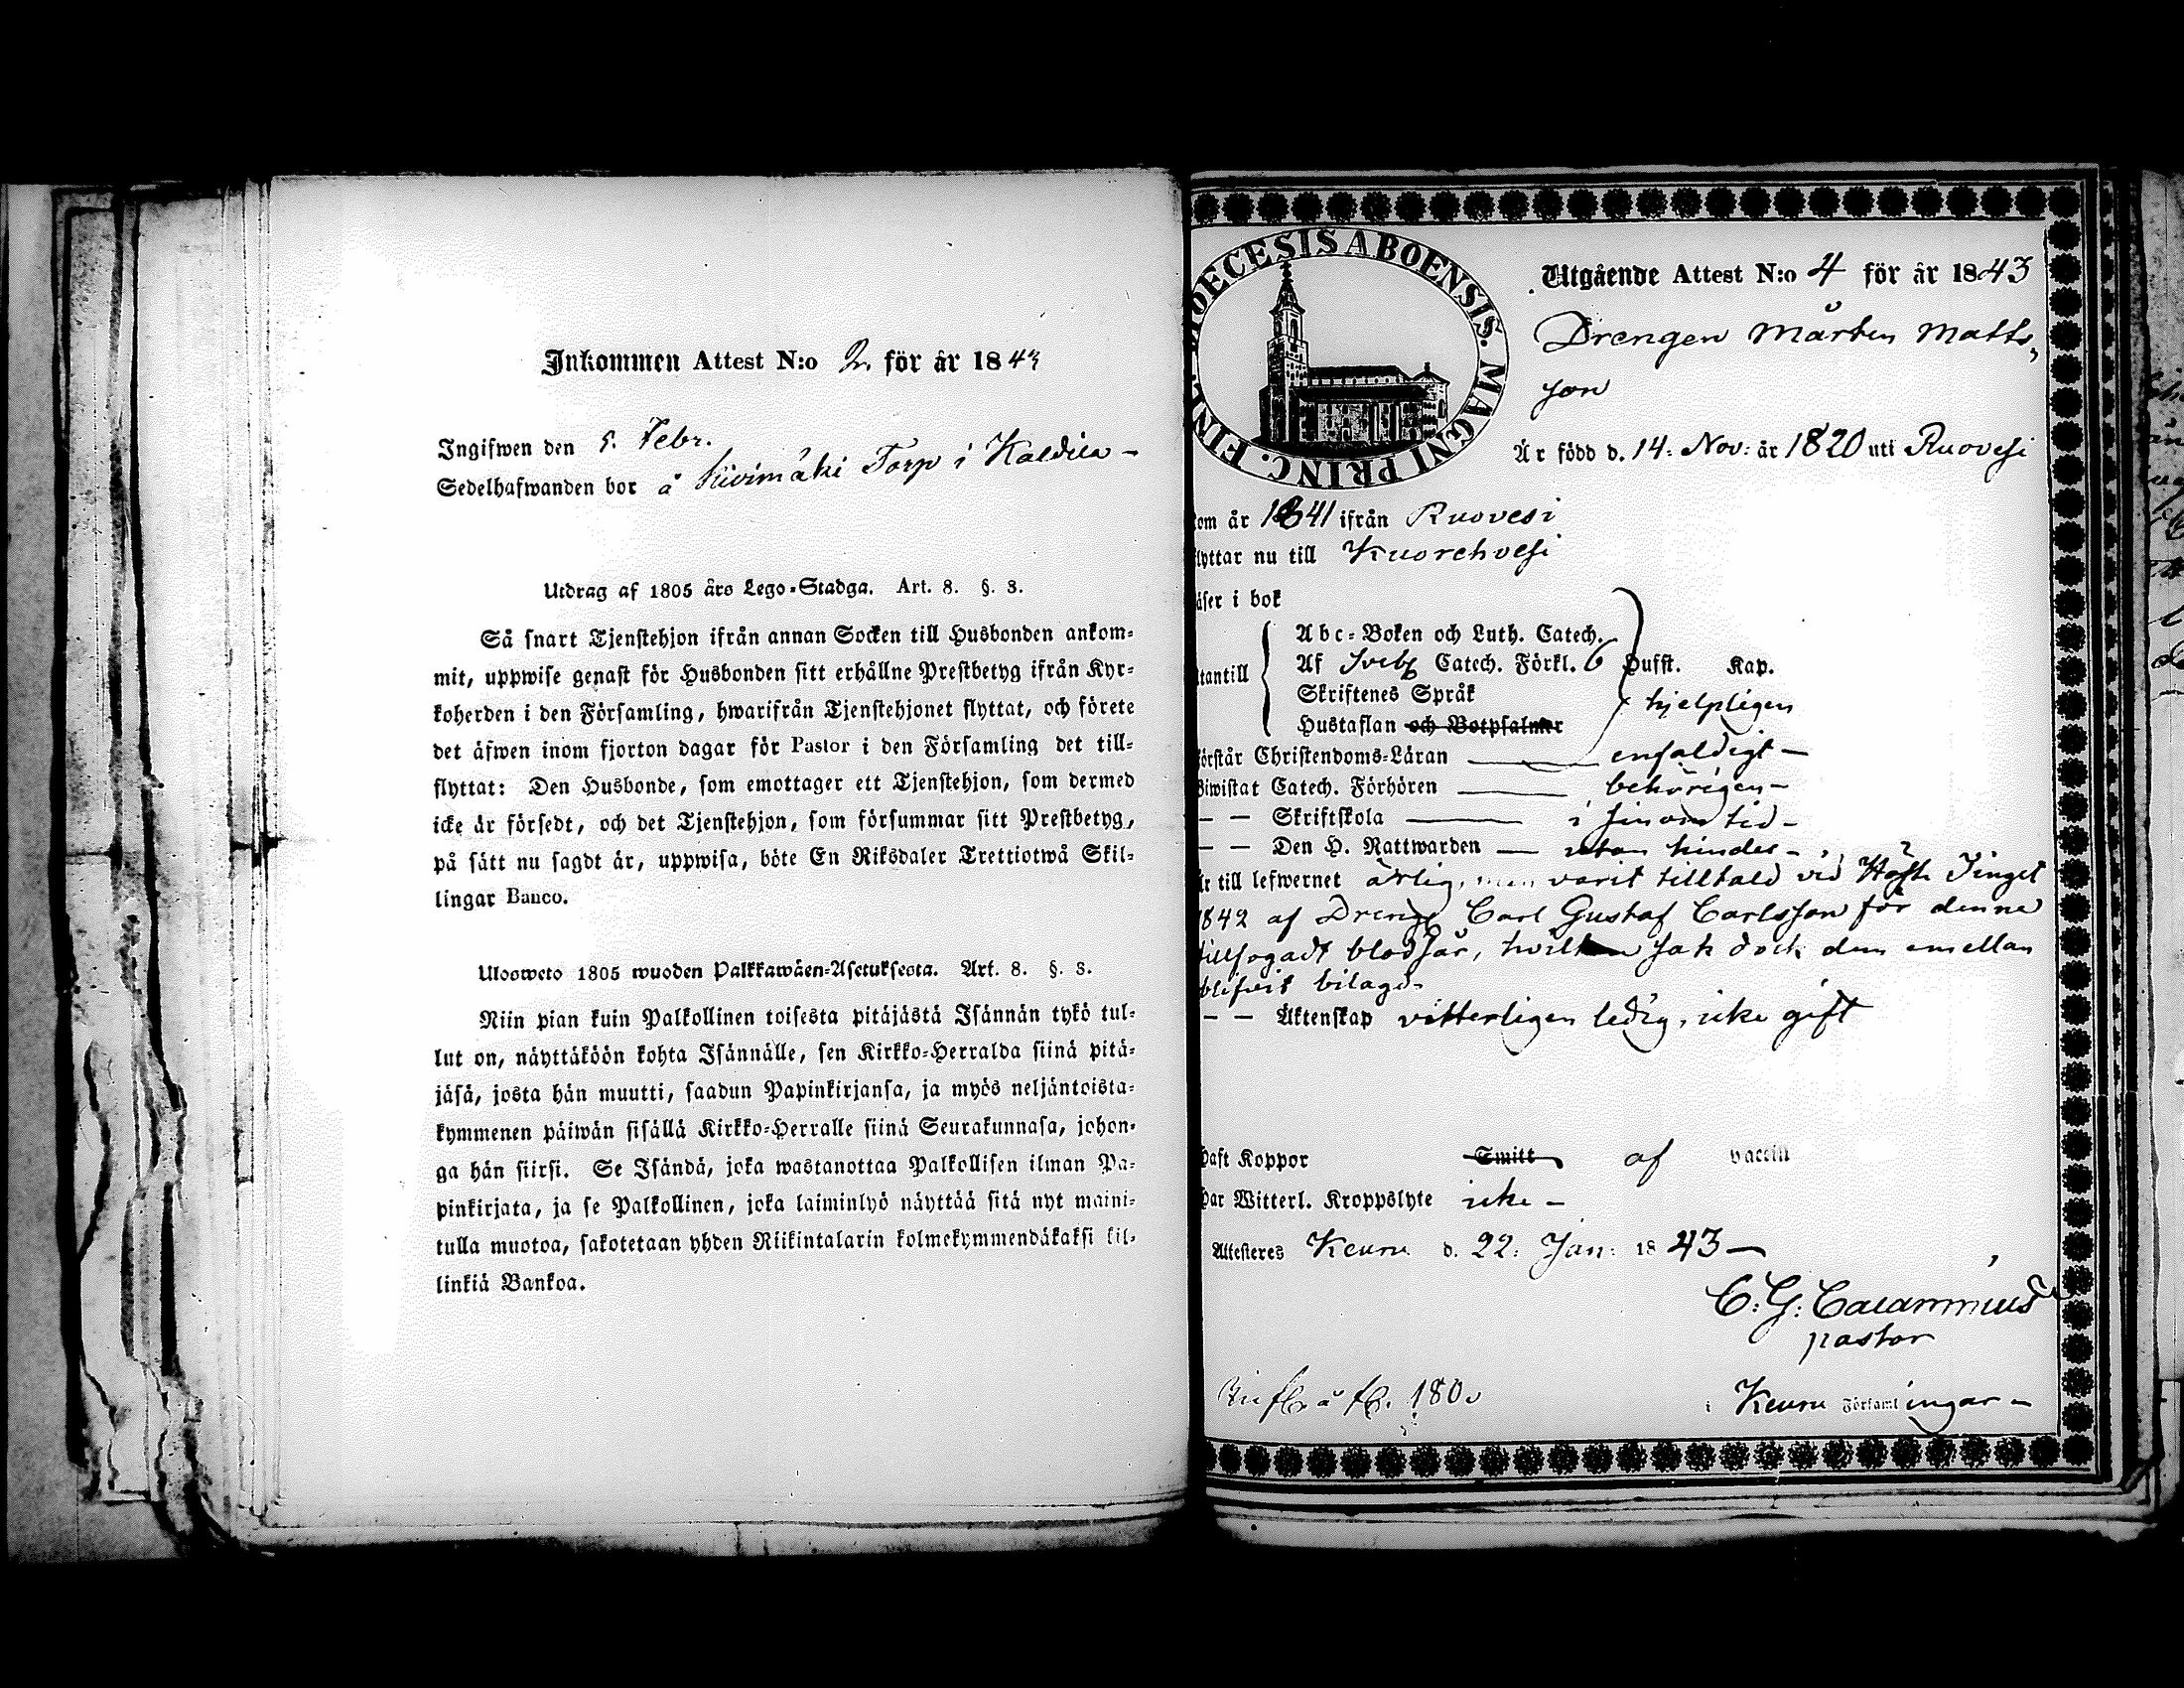 Inkommen Attest N:o 2. för år 1843
Ingifwen den 5. Febr.
Sedelhafwanden bor å Kivimäki Torp i Kaldila -
Utdrag af 1805 års Lego-Stadga. Art. 8. §. 3.
Så snart Tjenstehjon ifrån annan Socken till Husbonden ankom-
mit, uppwise genast för Husbonden sitt erhållne Prestbetyg ifrån Kyr-
koherden i den Församling, hwarifrån Tjenstehjonet flyttat, och förete
det äfwen inom fjorton dagar för Pastor i den Församling det till-
flyttat: Den Husbonde, som emottager ett Tjenstehjon, som dermed
icke är försedt, och det Tjenstehjon, som försummar sitt Prestbetyg,
på sätt nu sagdt är, uppwisa, böte En Riksdaler Trettiotwå Skil-
lingar Banco.
Ulosweto 1805 wuoden Palkkawäen-Asetuksesta. Art. 8. §. 3.
Niin pian kuin Palkollinen toisesta pitäjästä Isännän tykö tul-
lut on, näyttäköön kohta Isännälle, sen Kirkko-Herralda siinä pitä-
jäsä, josta hän muutti, saadun Papinkirjansa, ja myös neljäntoista-
kymmenen päiwän sisällä Kirkko-Herralle siinä Seurakunnasa, johon-
ga hän siirsi. Se Isändä, joka wastanottaa Palkollisen ilman Pa-
pinkirjata, ja se Palkollinen, joka laiminlyö näyttää sitä nyt maini-
tulla muotoa, sakotetaan yhden Riikintalarin kolmekymmendäkaksi kil-
linkiä Bankoa.
DIOECESIS ABOENSIS. MAGNI PRINC. FINL.
Utgående Attest N:o 4 för år 1843
Drengen Mårten Matts-
son
Är född d. 14: Nov: år 1820 uti Ruovesi
kom år 1841 ifrån Ruovesi
flyttar nu till Kuorehvesi
läser i bok
utantill
Abc-Boken och Luth. Catech.
Af Sveb Catech. Förkl. 6 Hufst. Kap.
Skriftenes Språk hjelpligen
Hustaflan och Botpsalmer
förstår Christendoms-Läran enfaldigt -
Biwistat Catech. Förhören behörigen -
— — Skriftskola i sinom tid -
— — Den H. Nattwarden utan hinder -
Är till lefwernet ärlig, men varit tilltald vid Höste Tinget
1842 af Dreng Carl Gustaf Carlsson för denne
tillfogadt blodsår, hvilken sak dock dem emellan
blifvit bilagd.
— — Äktenskap vitterligen ledig, icke gift
Haft Koppor Smitt af Vaccin
Har Witterl. Kroppslyte icke -
Attesteres Keuru d. 22: Jan: 1843 -
C: G: Calamnius
pastor
i Keuru Församlingar -